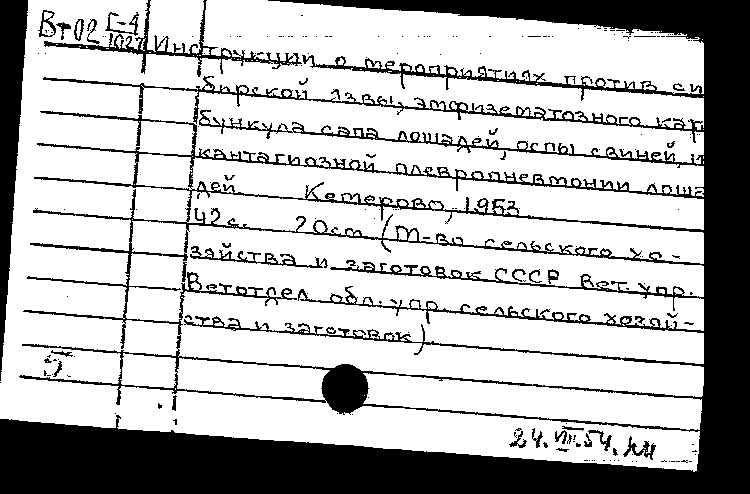 Вт02 Г-4
1027
Инструкции о мероприятиях против си
бирской язвы, эмфизематозного кар
бункула сапа лошадей, оспы свиней, и
кантагиозной плевропневмонии лоша
дей. Кемерово, 1953.
42с. 20см (М-во сельского хо-
зяйства и заготовок СССР Вет. упр.
Ветотдел обл. упр. сельского хозяй-
ства и заготовок)
5
24.VIII.54.